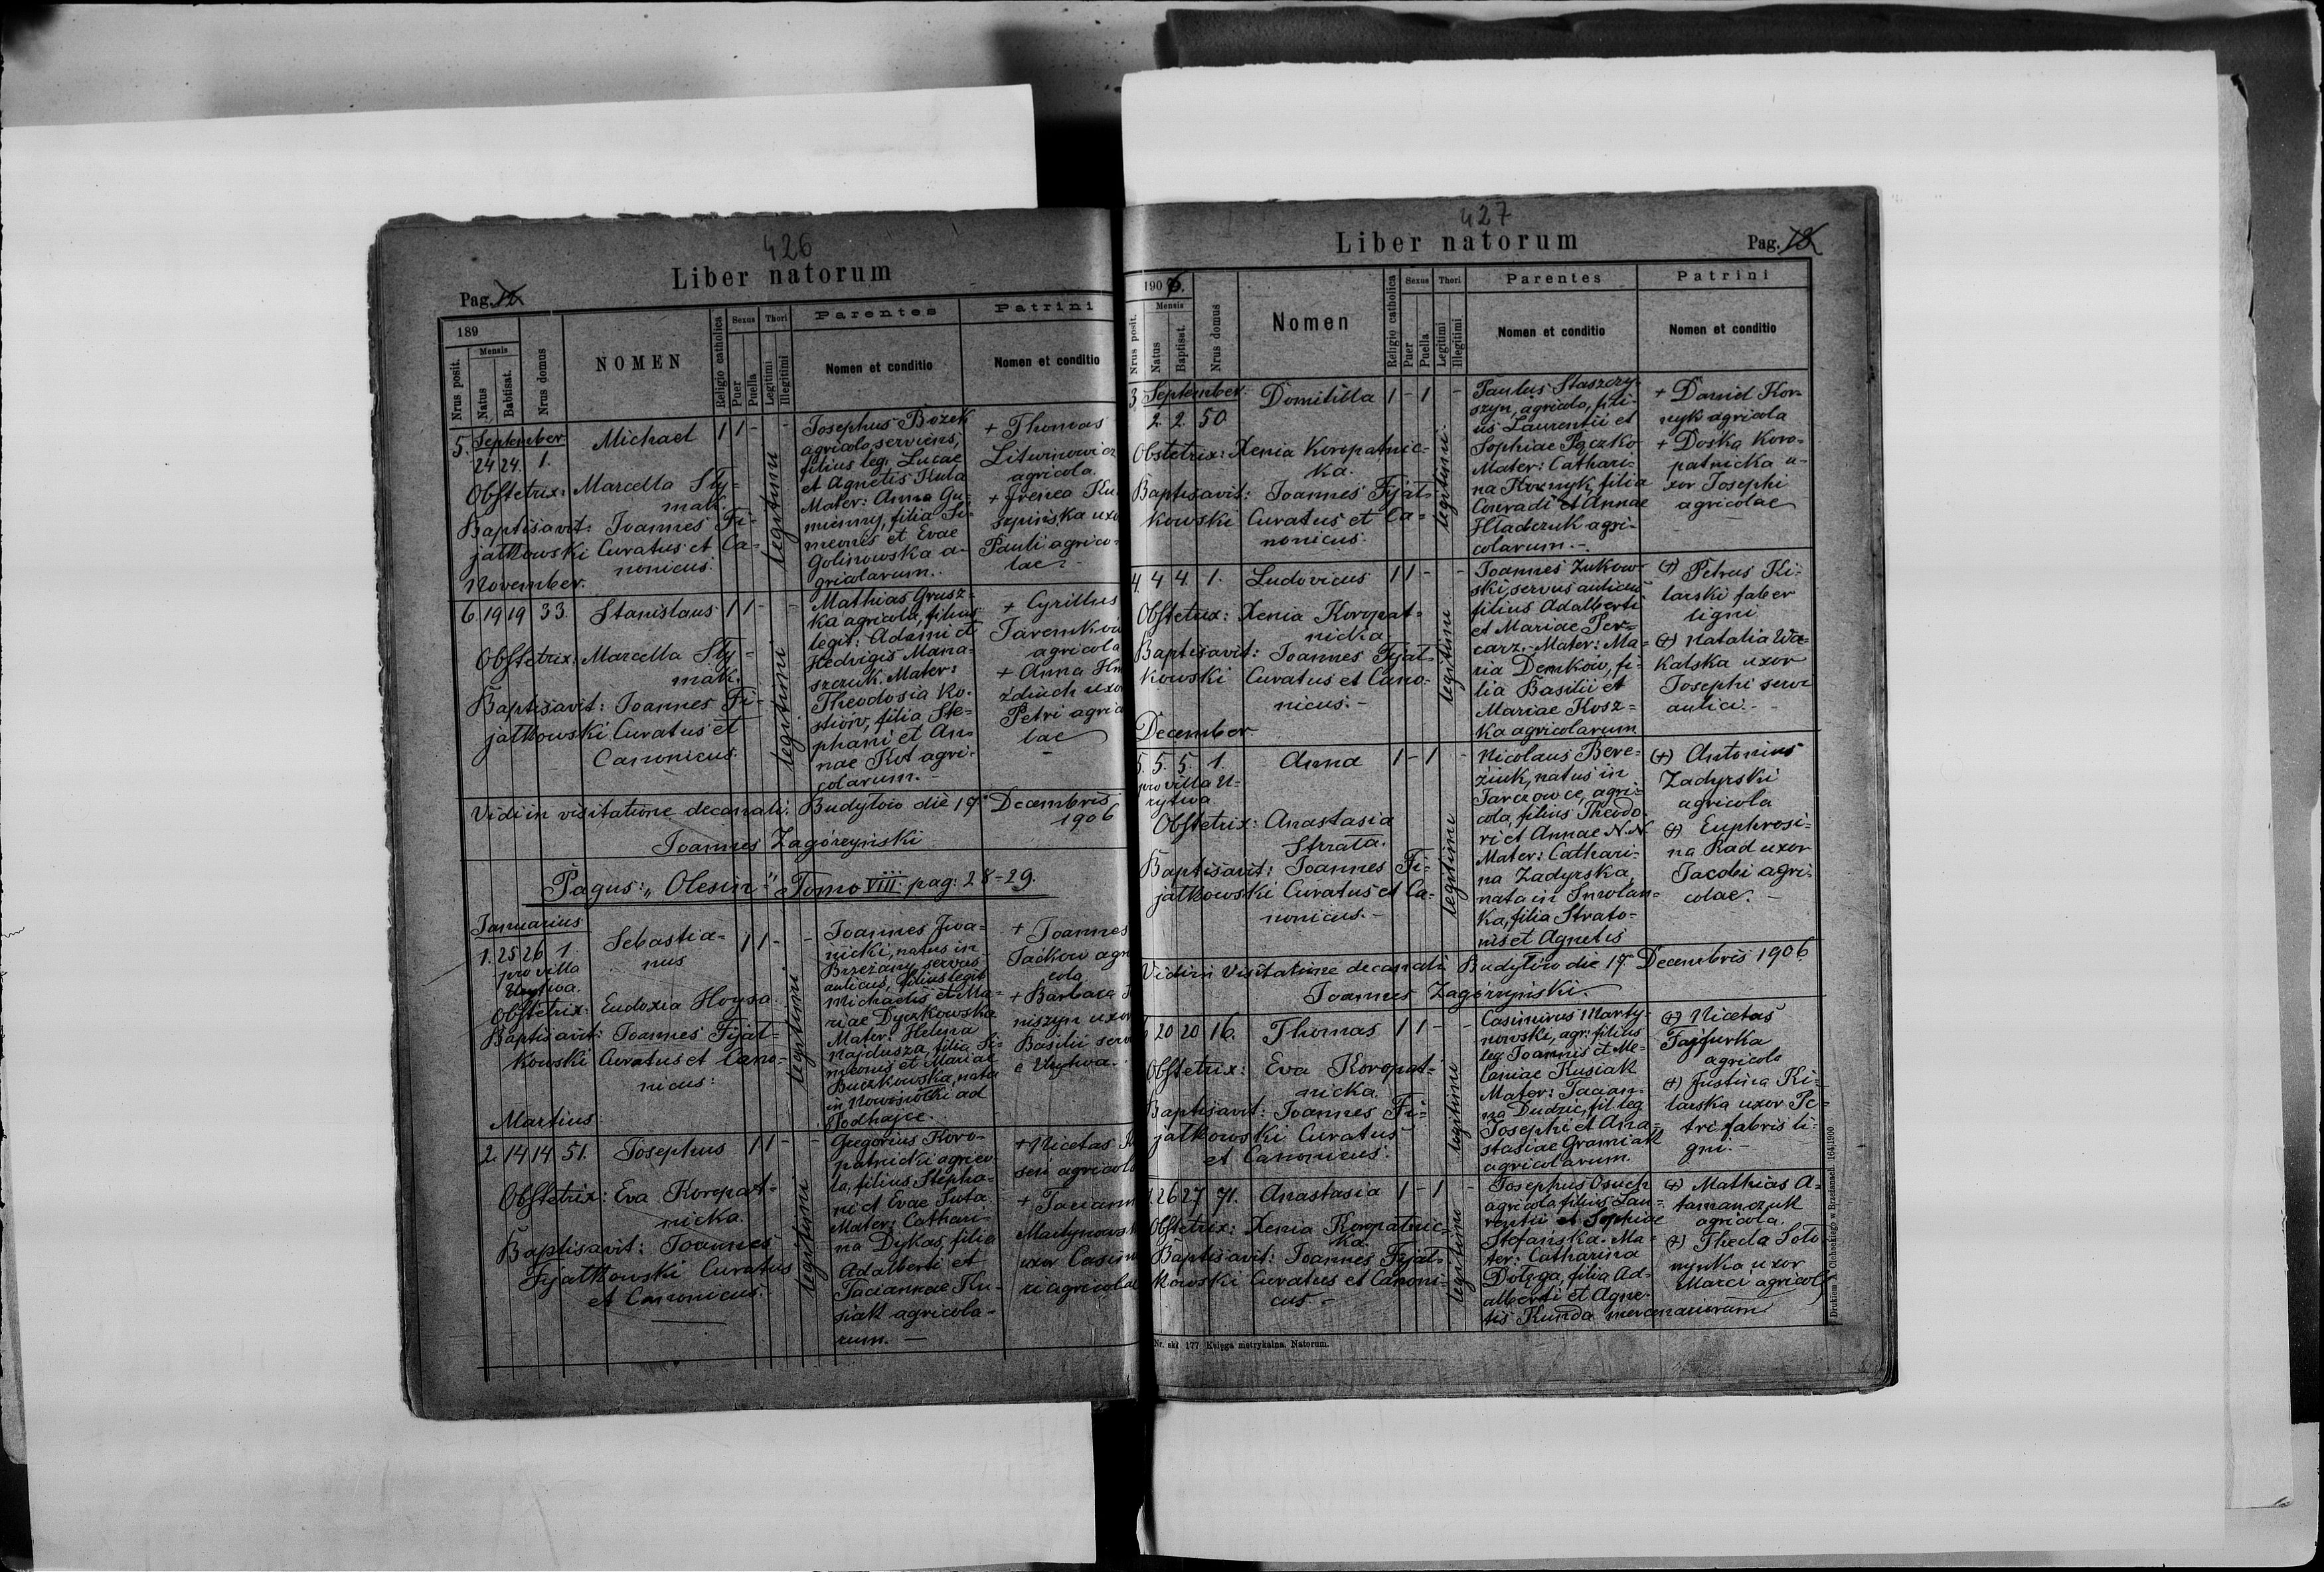 426
Liber natorum
Pag. 12
189
Nrus posit.
Mensis
Natus
Babtisat.
Nrus domus
NOMEN
Religio catholica
Sexus
Puer
Puella
Thori
Legitimi
Illegitimi
Parentes
Nomen et conditio
Patrini
Nomen et conditio
September
5. 24 24. 1. Michael 1 1 - -
Obstetrix: Marcella Sty=
mak.
Baptisavit: Joannes Fi=
jałkowski Curatus et Ca=
nonicus.
legitimi
Josephus Bożek
agricola serviens,
filius leg. Lucae
et Agnetis Kula
Mater: Anna Gu=
mienny, filia Si=
meonis et Evae
Golinowska a=
gricolarum.
+ Thomas
Litwinowicz
agricola.
+ Irenea Ku
szpińska uxo
Pauli agrico=
lae
November.
6 19 19 33. Stanislaus 1 1 - -
Obstetrix: Marcella Sty=
mak.
Baptisavit: Joannes Fi=
jałkowski Curatus et
Canonicus.
legitimi
Mathias Grusz=
ka agricola, filius
legit: Adami et
Hedvigis Mana=
szczuk. Mater:
Theodosia Ko=
stiow, filia Ste=
phani et An=
nae Kot agri=
colarum. -
+ Cyrillus
Jaremkow
agricola
+ Anna
żdiuch uxor
Petri agrico
lae
Vidi in visitatione decanali. Budyłow die 17 Decembris
1906
Joannes Zagórzyński
Pagus: "Olesin" Tomo VIII. pag: 28-29.
Januarius
1. 25 26 1. Sebastia= 1 1 - -
nus
pro villa
Urytwa.
Obstetrix: Eudoxia Hoysa.
Baptisavit: Joannes Fijał=
kowski Curatus et Cano=
nicus:
legitimi
Joannes Iwa=
nicki, natus in
Brzeżany, servus
aulicus, filius legit
Michaelis et Ma=
riae Dyczkowska
Mater: Helena
Najdusza, filia Si=
meonis et Mariae
Buczkowska, nata
in Nowosiółki ad
Podhajce.
+ Joannes
Jaćkow agri
cola
+ Barbara
niszyn uxor
Basilii serv
e Urytwa.
Martius
2. 14 14 51. Josephus 1 1 - -
Obstetrix: Eva Koropat=
nicka.
Baptisavit: Joannes
Fijałkowski Curatus
et Canonicus.
legitimi
Gregorius Koro=
patnicki agrico
la, filius Stepha=
ni et Evae Suta.
Mater: Cathari=
na Dykas, filia
Adalberti et
Taciannae Ku=
siak agricola=
rum. -
+ Nicetas
sen agricola
+ Tacianna
Martynowsk
uxor Casimi
ri agricolae
427
Liber natorum
Pag. 13
1906.
Nrus posit.
Mensis
Natus
Baptisat.
Nrus domus
Nomen
Religio catholica
Sexus
Puer
Puella
Thori
Legitimi
Illegitimi
Parentes
Nomen et conditio
Patrini
Nomen et conditio
September
3. 2. 2. 50. Domitilla 1 - 1 -
Obstetrix: Xenia Koropatnic=
ka.
Baptisavit: Joannes Fijał=
kowski Curatus et Ca=
nonicus.
legitimi
Paulus Staszczy=
szyn, agricola, fili=
us Laurentii et
Sophiae Pączko
Mater: Cathari=
na Kornyk, filia
Conradi et Annae
Hładczuk agri=
colarum. -
+ Daniel Kor=
nyk agricola
+ Dośka Koro=
patnicka u=
xor Josephi
agricolae
4. 4 4. 1. Ludovicus 1 1 - -
Obstetrix: Xenia Koropat=
nicka
Baptisavit: Joannes Fijał=
kowski Curatus et Cano=
nicus. -
legitimi
Joannes Żukow=
ski, servus aulicus
filius Adalberti
et Mariae Per=
carz. - Mater: Ma=
ria Demków, fi=
lia Basilii et
Mariae Kosz=
ka agricolarum
(+) Petrus Ki=
larski faber
ligni
(+) Natalia Wa=
kalska uxor
Josephi servi
aulici. -
December
5. 5. 5. 1. Anna 1 - 1 -
pro villa U=
rytwa
Obstetrix: Anastasia
Strata.
Baptisavit: Joannes Fi=
jałkowski Curatus et Ca=
nonicus. -
legitimi
Nicolaus Bere=
ziuk, natus in
Jarczowce, agri=
cola, filius Theodo
ri et Annae N.N.
Mater: Cathari=
na Zadyrska,
nata in Smolan=
ka, filia Strato=
nis et Agnetis
(+) Antonius
Zadyrski
agricola
(+) Euphrosi=
na Rad uxor
Jacobi agri=
colae. -
Vidi in Visitatione decanali Budyłów die 17 Decembris 1906.
Joannes Zagórzyński.
20 20 16. Thomas 1 1 - -
Obstetrix: Eva Koropat=
nicka.
Baptisavit: Joannes Fi=
jałkowski Curatus
et Canonicus.
legitimi
Casimirus Marty=
nowski, agr: filius
leg: Joannis et Me=
laniae Kusiak
Mater: Tacian=
na Dudzic, fil. leg
Josephi et Ana=
stasiae Gramiak
agricolarum.
(+) Nicetas
Fajfurka
agricola
(+) Justina Ki=
larska uxor Pe=
tri fabris li=
gni. -
26 27 71. Anastasia 1 - 1 -
Obstetrix: Xenia Koropatnic=
ka.
Baptisavit: Joannes Fijał=
kowski Curatus et Canoni=
cus. -
legitimi
Josephus Osuch
agricola, filius Lau=
rentii et Sophiae
Stefanska. Ma=
ter: Catharina
Dołęga, filia Ad=
alberti et Agne=
tis Kunda mercenariorum
(+) Mathias A=
tamanczuk
agricola.
(+) Thecla Soto
nynka uxor
Marci agricol
Nr. skł 177 Księga metrykalna. Natorum.
Drukiem A. Cichockiego w Brzeżanach. 164|1900